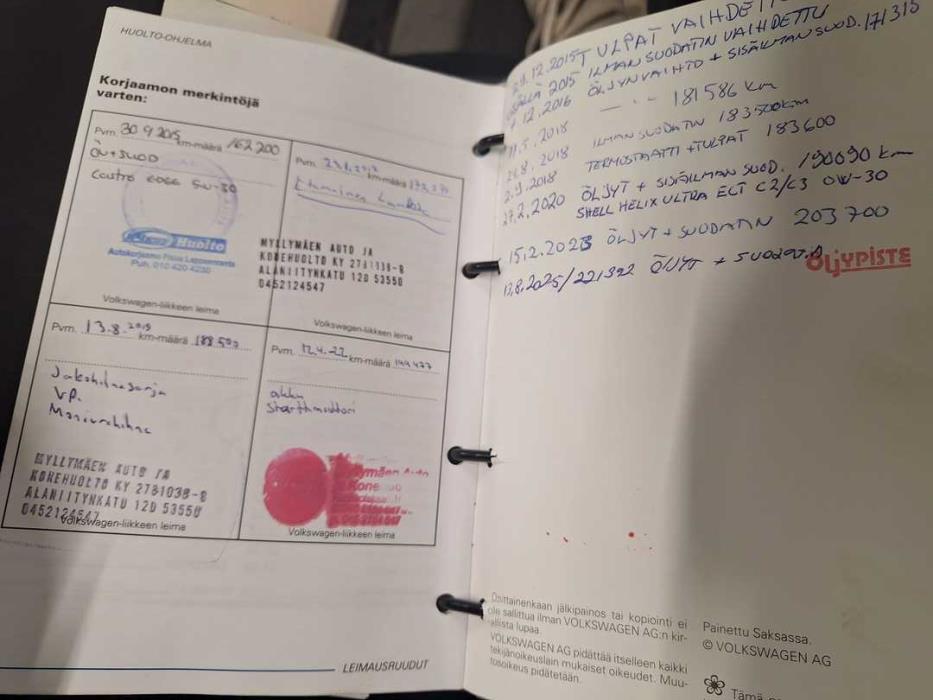 HUOLTO-OHJELMA
Korjaamon merkintöjä
varten:
Pvm. 30.9.2015 km-määrä 162200
ÖV+SUOD
5W-30
Huolto
Puh. 010 420 4230
Volkswagen-liikkeen leima
Pvm. km-määrä
MYLLYMÄEN AUTO JA
KONEHUOLTO KY 2731038-8
ALANIITYNKATU 12D 53550
0452124547
Volkswagen-liikkeen leima
Pvm. 13.8.2019 km-määrä
Jakohihnasarja
VP.
MYLLYMÄEN AUTO JA
KONEHUOLTO KY 2731038-8
ALANIITYNKATU 12D 53550
0452124547
Volkswagen-liikkeen leima
Pvm. 12.4.22 km-määrä 199477
akku
starttimoottori
Volkswagen-liikkeen leima
LEIMAUSRUUDUT
29.12.2015 TULPAT VAIHDETTU
2015 ILMANSUODATIN VAIHDETTU
12.2016 ÖLJYNVAIHTO + SISÄILMAN SUOD. 171315
11.5.2018 181586 km
2018 ILMANSUODATIN 183500km
2.9.2018 TERMOSTAATTI + TULPAT 183600
27.2.2020 ÖLJYT + SISÄILMAN SUOD. 190090 km
SHELL HELIX ULTRA ECT C2/C3 0W-30
15.2.2023 ÖLJYT + SUODATIN 203700
ÖLJYPISTE
13.8.2025/221392 ÖLJYT + SUODATIN
Osittainenkaan jälkipainos tai kopiointi ei
ole sallittua ilman VOLKSWAGEN AG:n kir-
jallista lupaa.
VOLKSWAGEN AG pidättää itselleen kaikki
tekijänoikeuslain mukaiset oikeudet. Muu-
tosoikeus pidätetään.
Painettu Saksassa.
© VOLKSWAGEN AG
Tämä